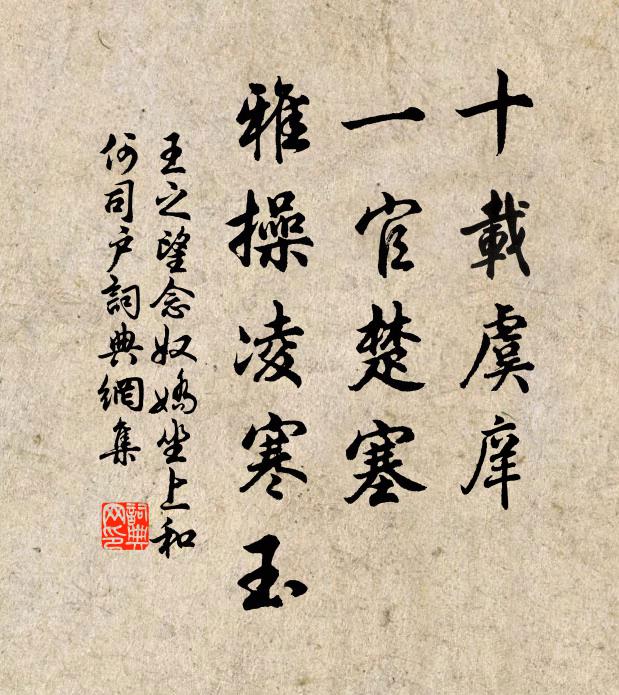 十載虞庠
一官楚塞
雅操凌寒玉
王之望念奴嬌坐上和
何司户詞典網集
詞典網印